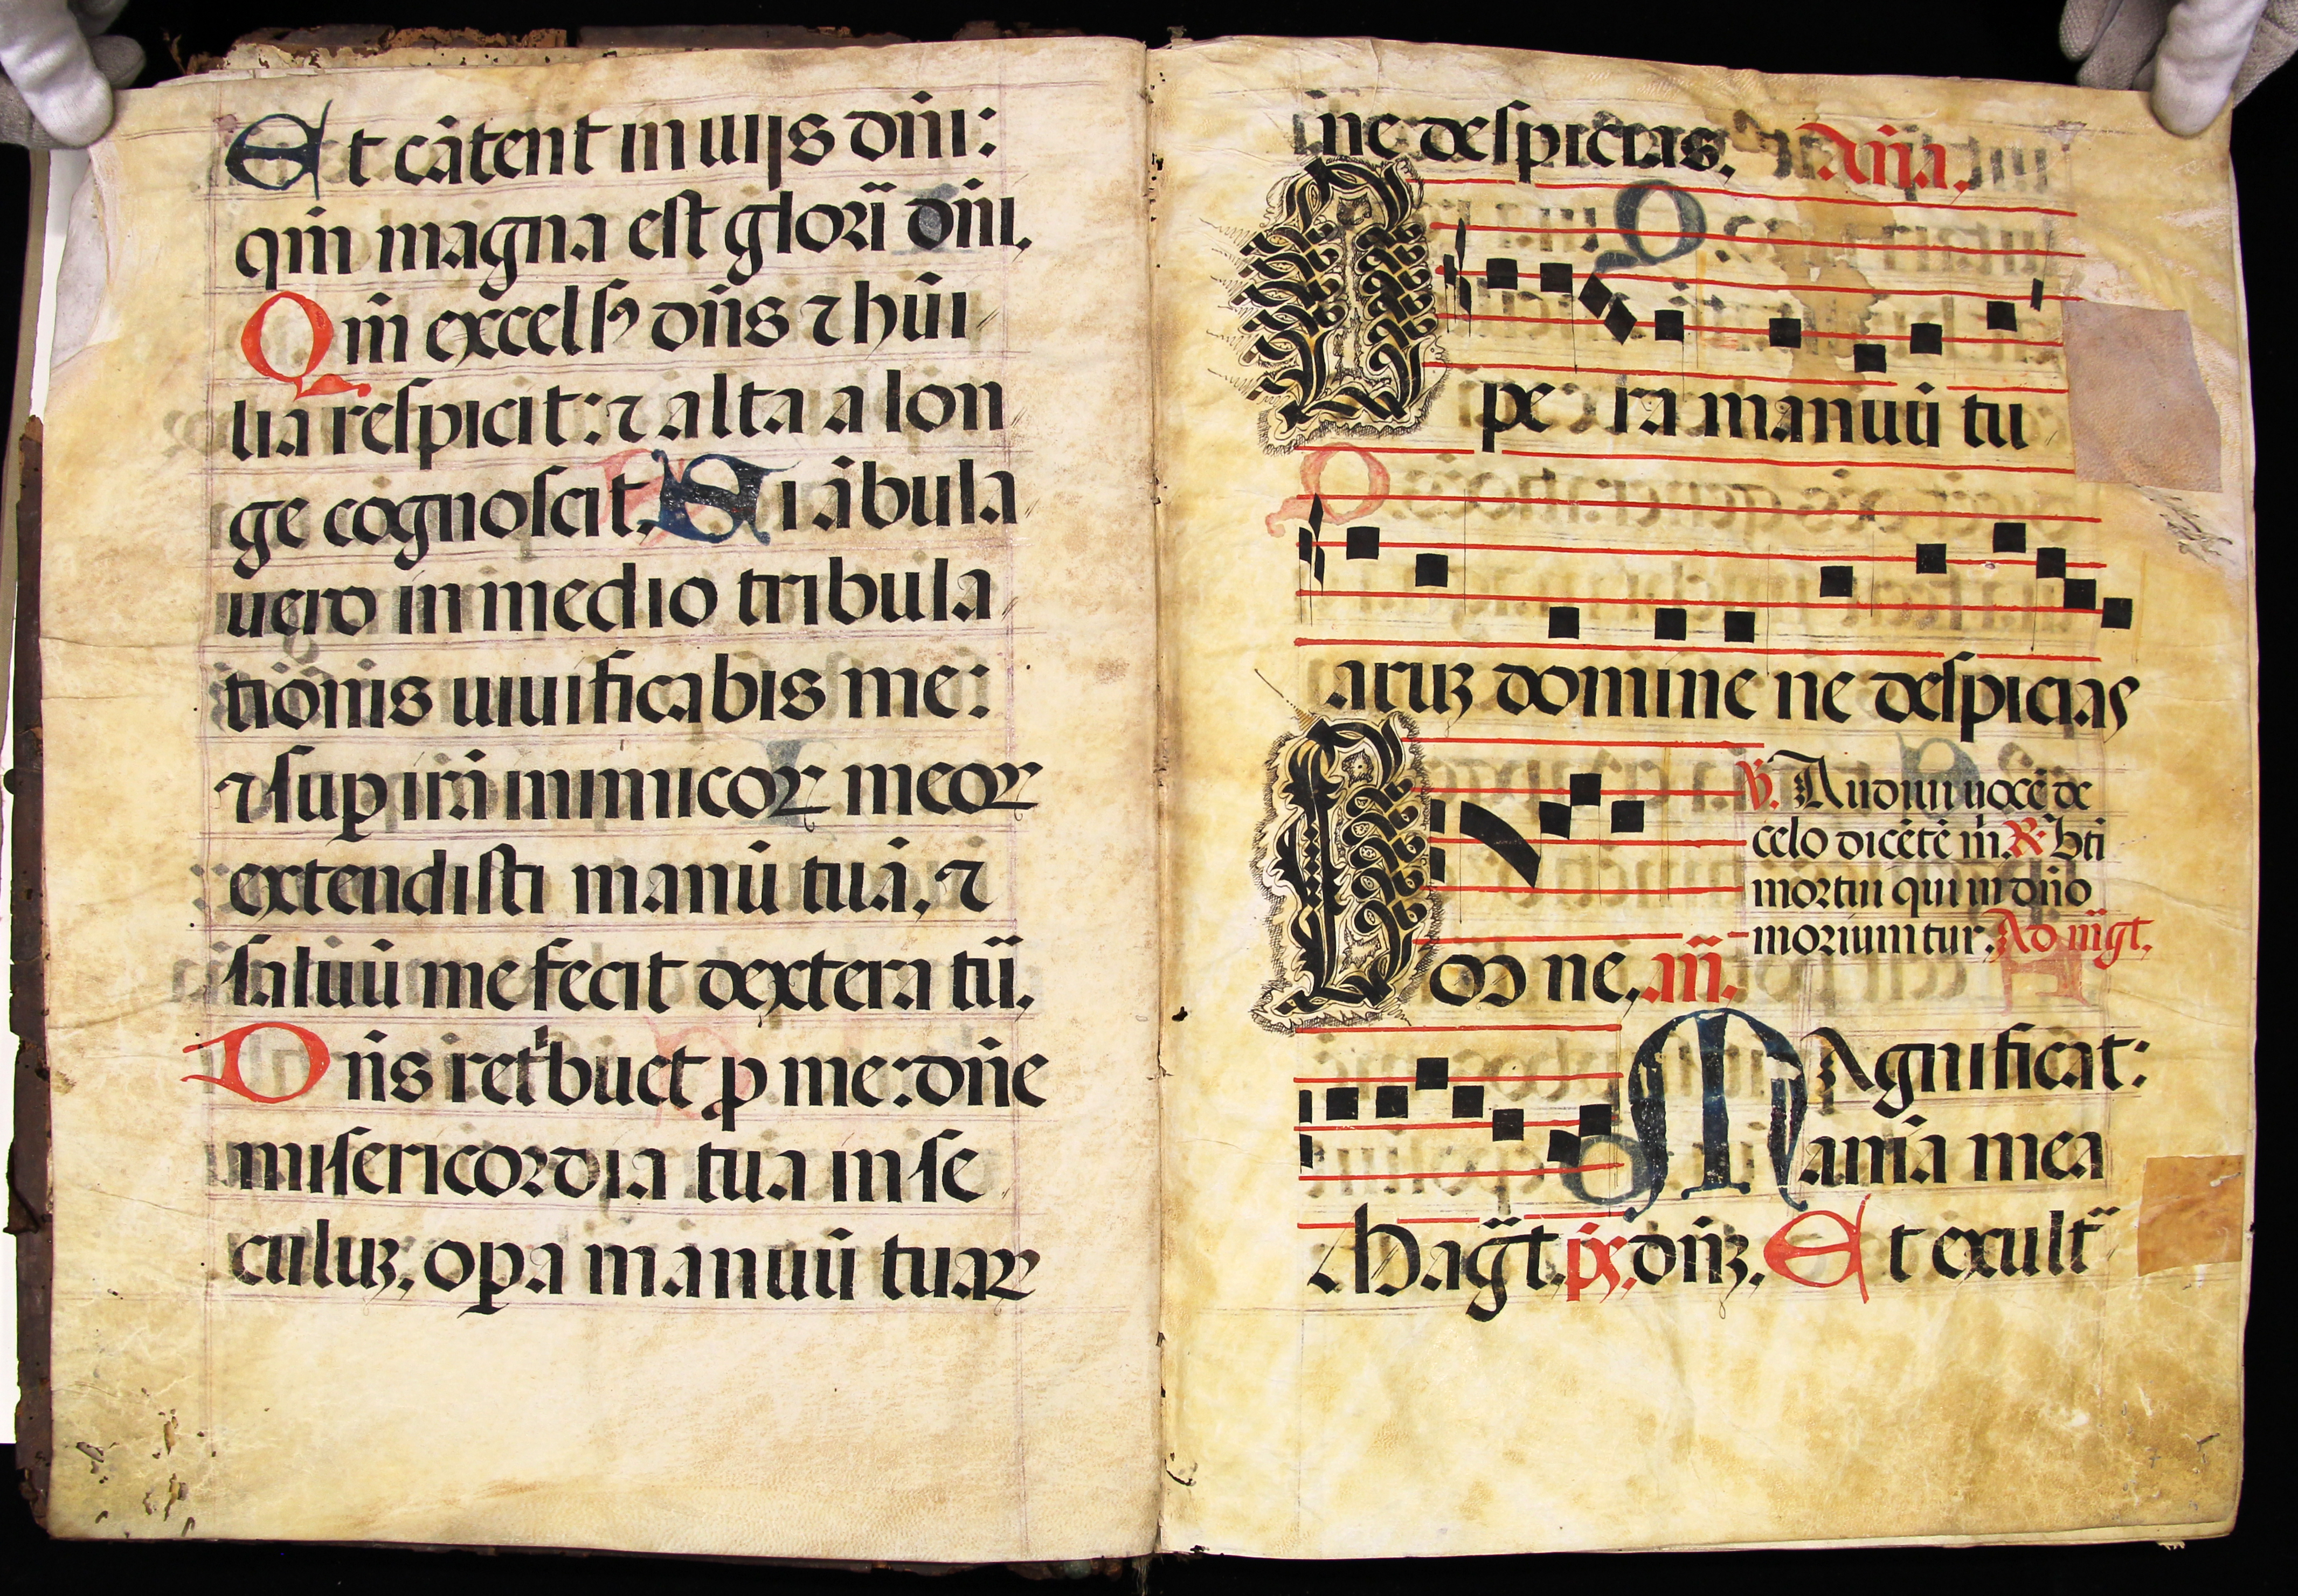 Et cātent in uijs dn̄i:
qm̄ magna est glorı̄a dn̄i.
Qm̄ excelsꝰ dn̄s ⁊ hūi
lia respicit: ⁊ alta a lon
ge cognoscit. Si ābula
uero in medio tribula
tiōnis uiuificabis me:
⁊ suꝑ irā inimicoꝝ meoꝝ
extendisti manū tuā, ⁊
saluū me fecit dextera tūa.
Dn̄s retⁱbuet ꝓ me: dn̄e
misericordia tua in se
culuꝫ, oꝑa manuū tuaꝝ
ne despicias. An̄a.
Opera manuū tu
aruꝫ domine ne despicias
℣. Audiui uocē de
celo dicētē m̄. ℟. Bt̄i
mortui qui in dn̄o
moriuntur. Ad m̄gt.
Om̄ne. an̄.
Magnificat:
anīa mea
Magt̄. ps. dn̄ꝫ. Et exult̄